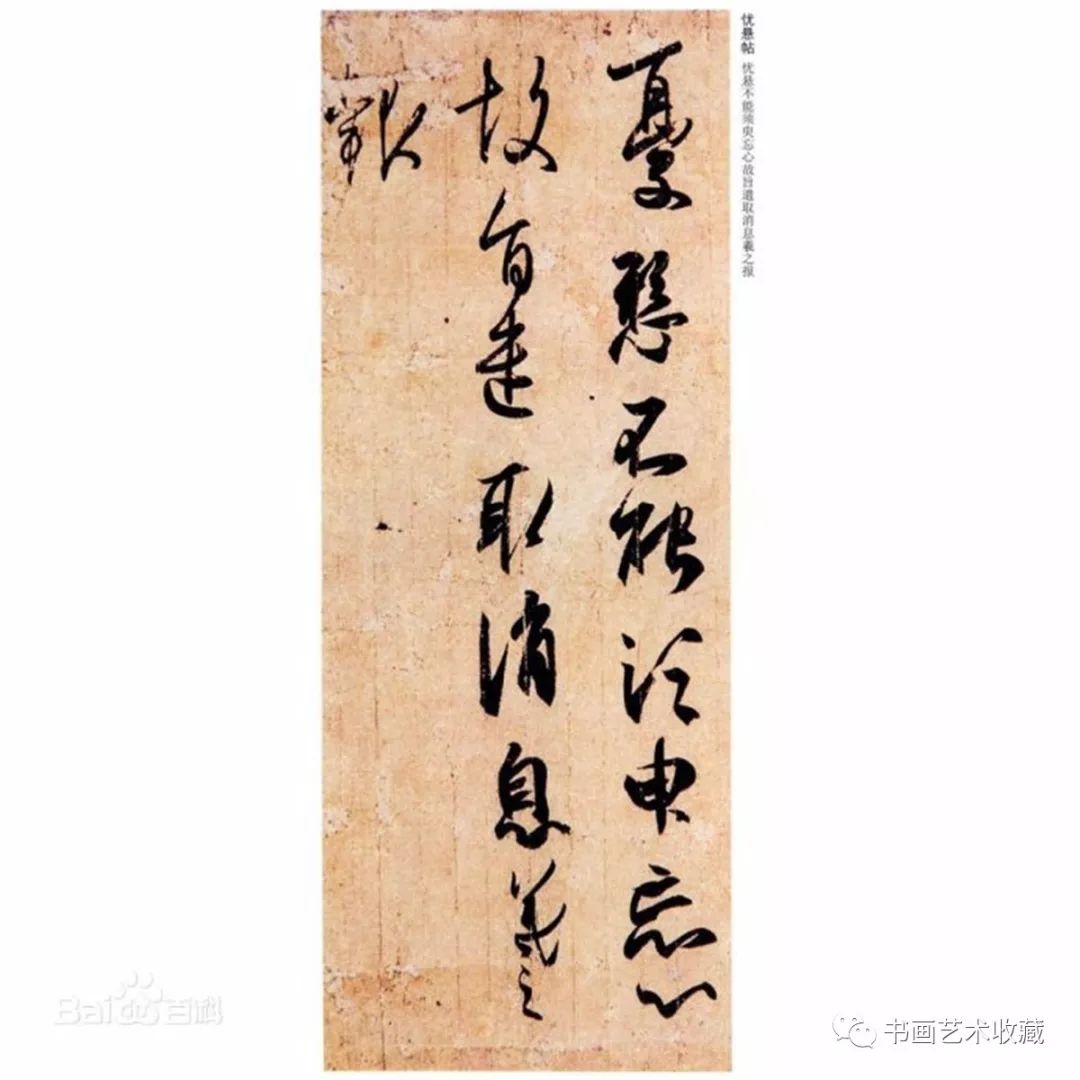 忧悬帖 忧悬不能须臾忘心故旨遣取消息羲之报
憂懸不能須臾忘心
故旨遣取消息羲之
報
Baidu百科
书画艺术收藏